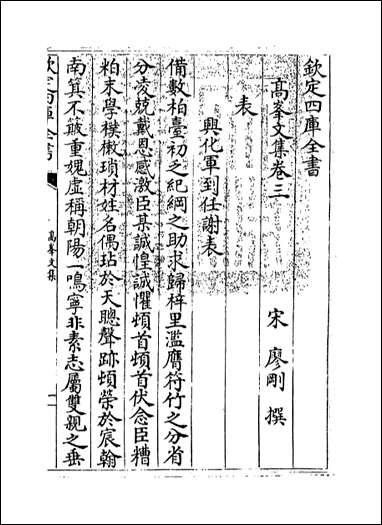 欽定四庫全書
高峯文集卷三
宋 廖剛 撰
表
興化軍到任謝表
備數柏臺初乏紀綱之助求歸梓里濫膺符竹之分省
分凌兢戴恩感激臣某誠惶誠懼頓首頓首伏念臣糟
粕末學樸樕瑣材姓名偶玷於天聰聲跡頓榮於宸翰
南箕不簸重媿虛稱朝陽一鳴寧非素志屬雙親之垂
欽定四庫全書
高峯文集
一